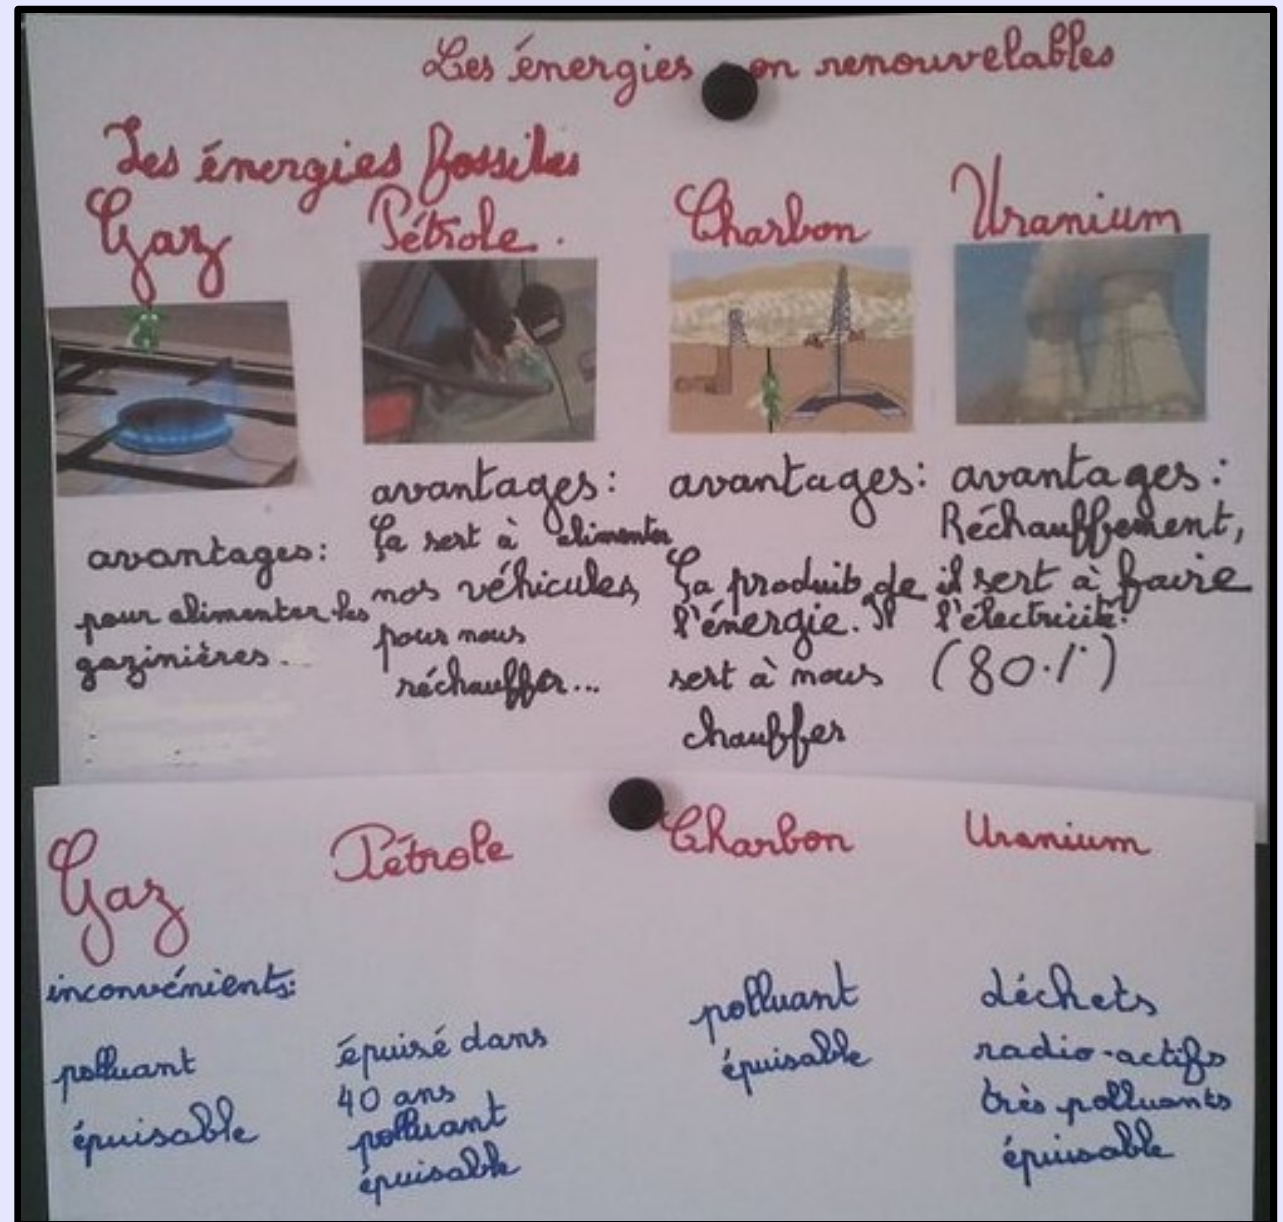 Les énergies non renouvelables
Les énergies fossiles
Gaz
avantages:
pour alimenter les
gazinières.
Pétrole.
avantages:
Ça sert à alimenter
nos véhicules,
pour nous
réchauffer...
Charbon
avantages:
Ça produit de
l'énergie. Il
sert à nous
chauffer
Uranium
avantages:
Réchauffement,
il sert à faire
l'électricité.
(80%)
Gaz
inconvénients:
polluant
épuisable
Pétrole
épuisé dans
40 ans
polluant
épuisable
Charbon
polluant
épuisable
Uranium
déchets
radio-actifs
très polluants
épuisable